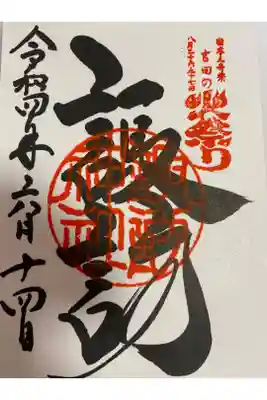 日本三奇祭
吉田の火祭り
八月二十六・二十七日
諏訪
神社
令和四年六月十四日